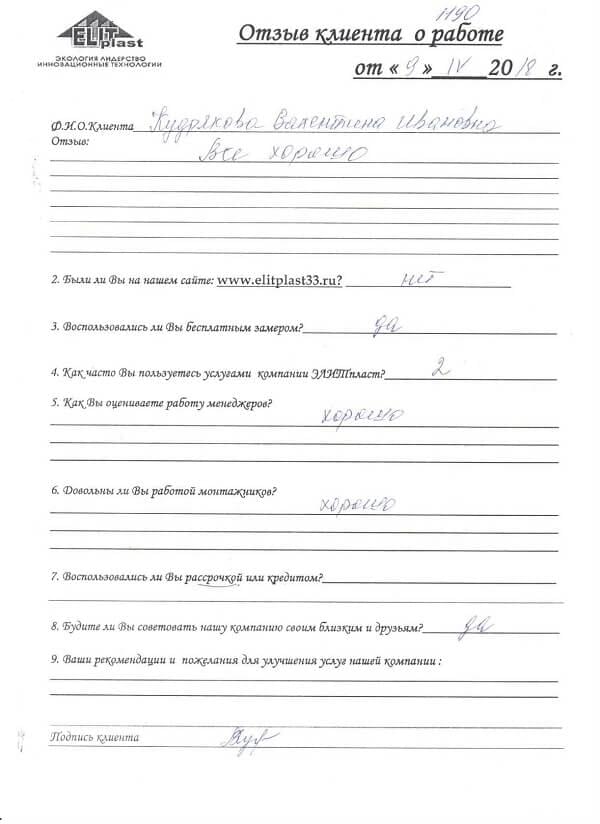 1190
ELIT plast
ЭКОЛОГИЯ ЛИДЕРСТВО
ИННОВАЦИОННЫЕ ТЕХНОЛОГИИ
Отзыв клиента о работе
от « 9 » IV 2018 г.
Ф.И.О.Клиента Кудрякова Валентина Ивановна
Отзыв:
Все хорошо
2. Были ли Вы на нашем сайте: www.elitplast33.ru? нет
3. Воспользовались ли Вы бесплатным замером? да
4. Как часто Вы пользуетесь услугами компании ЭЛИТпласт? 2
5. Как Вы оцениваете работу менеджеров?
хорошо
6. Довольны ли Вы работой монтажников?
хорошо
7. Воспользовались ли Вы рассрочкой или кредитом?
8. Будите ли Вы советовать нашу компанию своим близким и друзьям? да
9. Ваши рекомендации и пожелания для улучшения услуг нашей компании :
Подпись клиента Куд